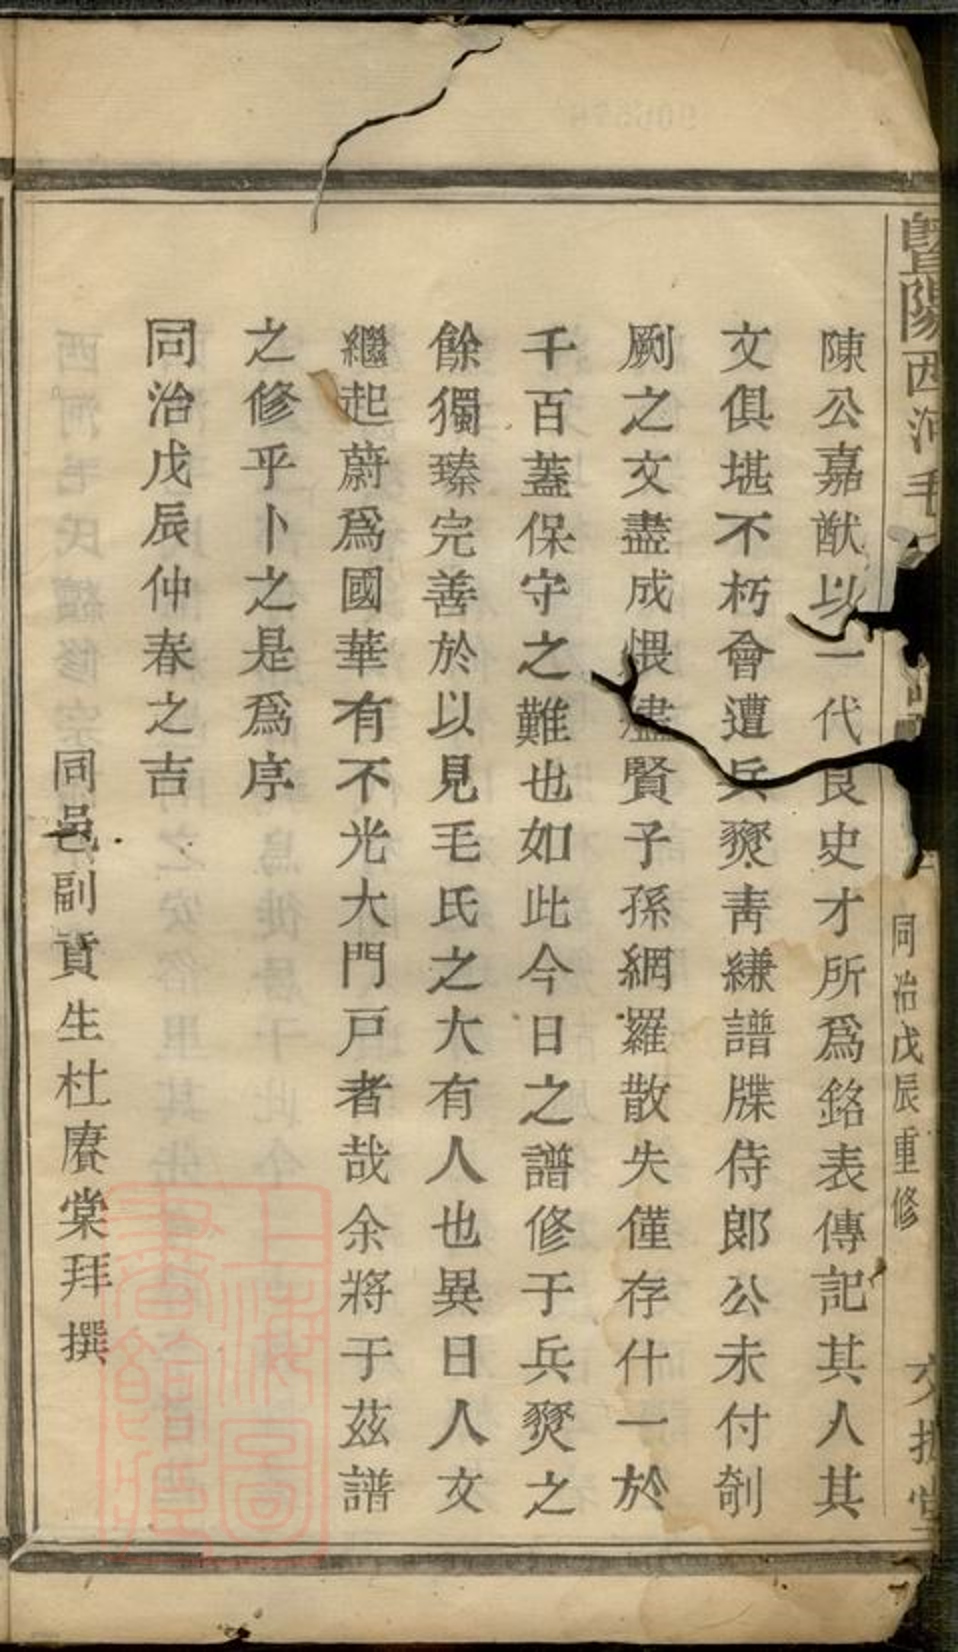 暨陽西河毛
同治戊辰重修
陳公嘉猷以一代良史才所爲銘表傳記其人其
文俱堪不朽會遭兵燹靑緗譜牒侍郎公未付剞
劂之文盡成煨燼賢子孫網羅散失僅存什一於
千百蓋保守之難也如此今日之譜修于兵燹之
餘獨臻完善於以見毛氏之大有人也異日人文
繼起蔚爲國華有不光大門戸者哉余將于茲譜
之修乎卜之是爲序
同治戊辰仲春之吉
同邑副貢生杜賡棠拜撰
上海圖書館藏